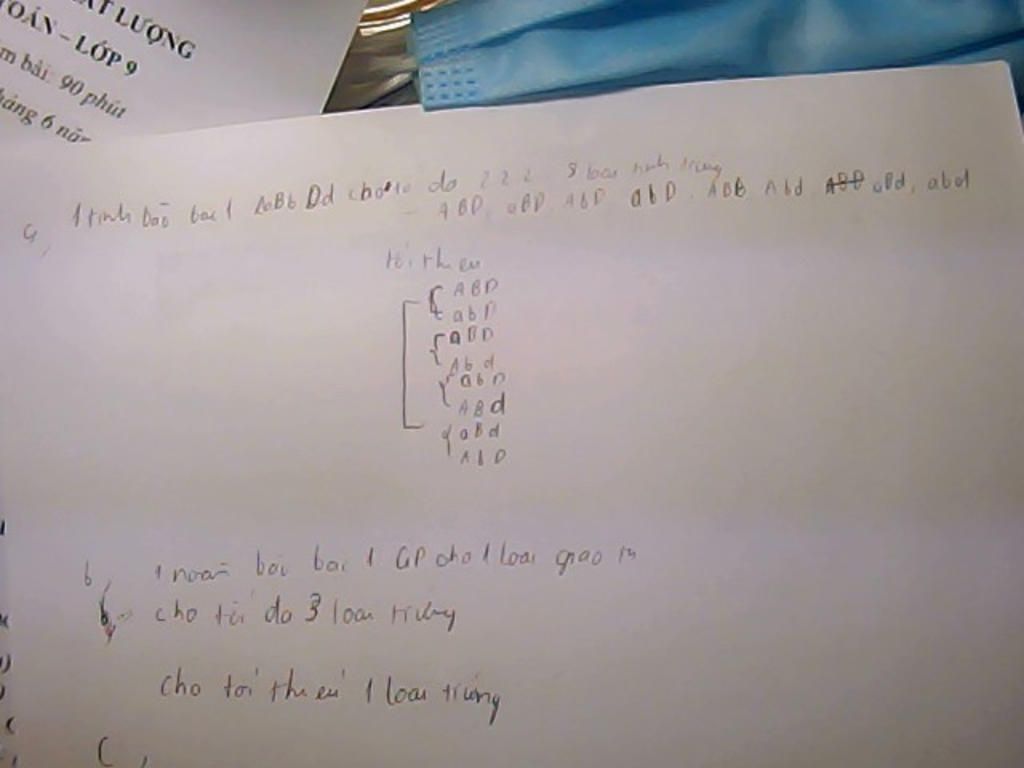 ẤT LƯỢNG
TOÁN - LỚP 9
m bài: 90 phút
háng 6 năm
a, 1 tinh bào bac 1 AaBbDd cho tối đa 2 2 2 8 loại tinh trùng
- ABD, aBD, AbD, abD, ABd Abd aBd, abd
tối thiểu
ABD
abD
aBD
Abd
abD
ABd
aBd
AbD
b, 1 noãn bài bac 1 GP cho 1 loai giao tử
cho tối đa 3 loai trứng
cho tối thiểu 1 loai trứng
C,